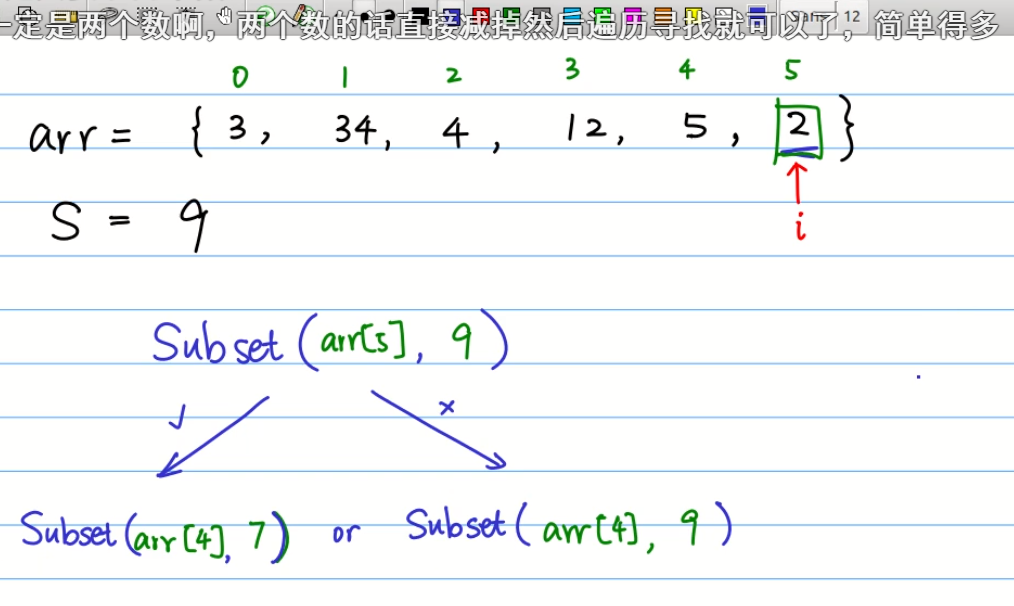 一定是两个数啊，两个数的话直接减掉然后遍历寻找就可以了，简单得多
Sans 12
0 1 2 3 4 5
arr = { 3, 34, 4, 12, 5, 2 }
i
S = 9
Subset(arr[5], 9)
✓ ×
Subset(arr[4], 7) or Subset(arr[4], 9)